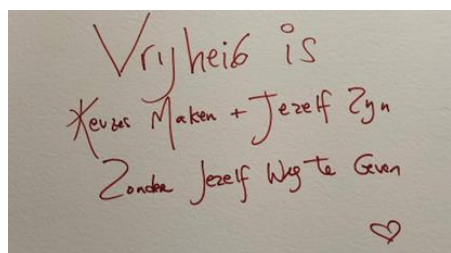 Vrijheid is
Keuzes Maken + Jezelf Zijn
Zonder Jezelf Weg Te Geven